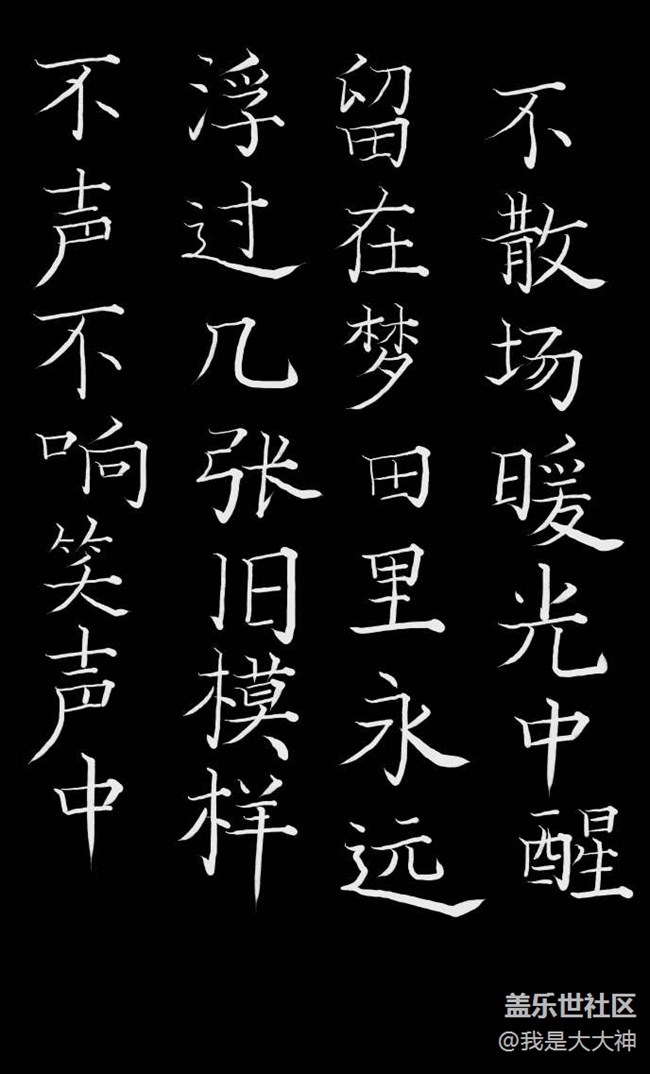 不声不响笑声中
浮过几张旧模样
留在梦田里永远
不散场暖光中醒
盖乐世社区
@我是大大神